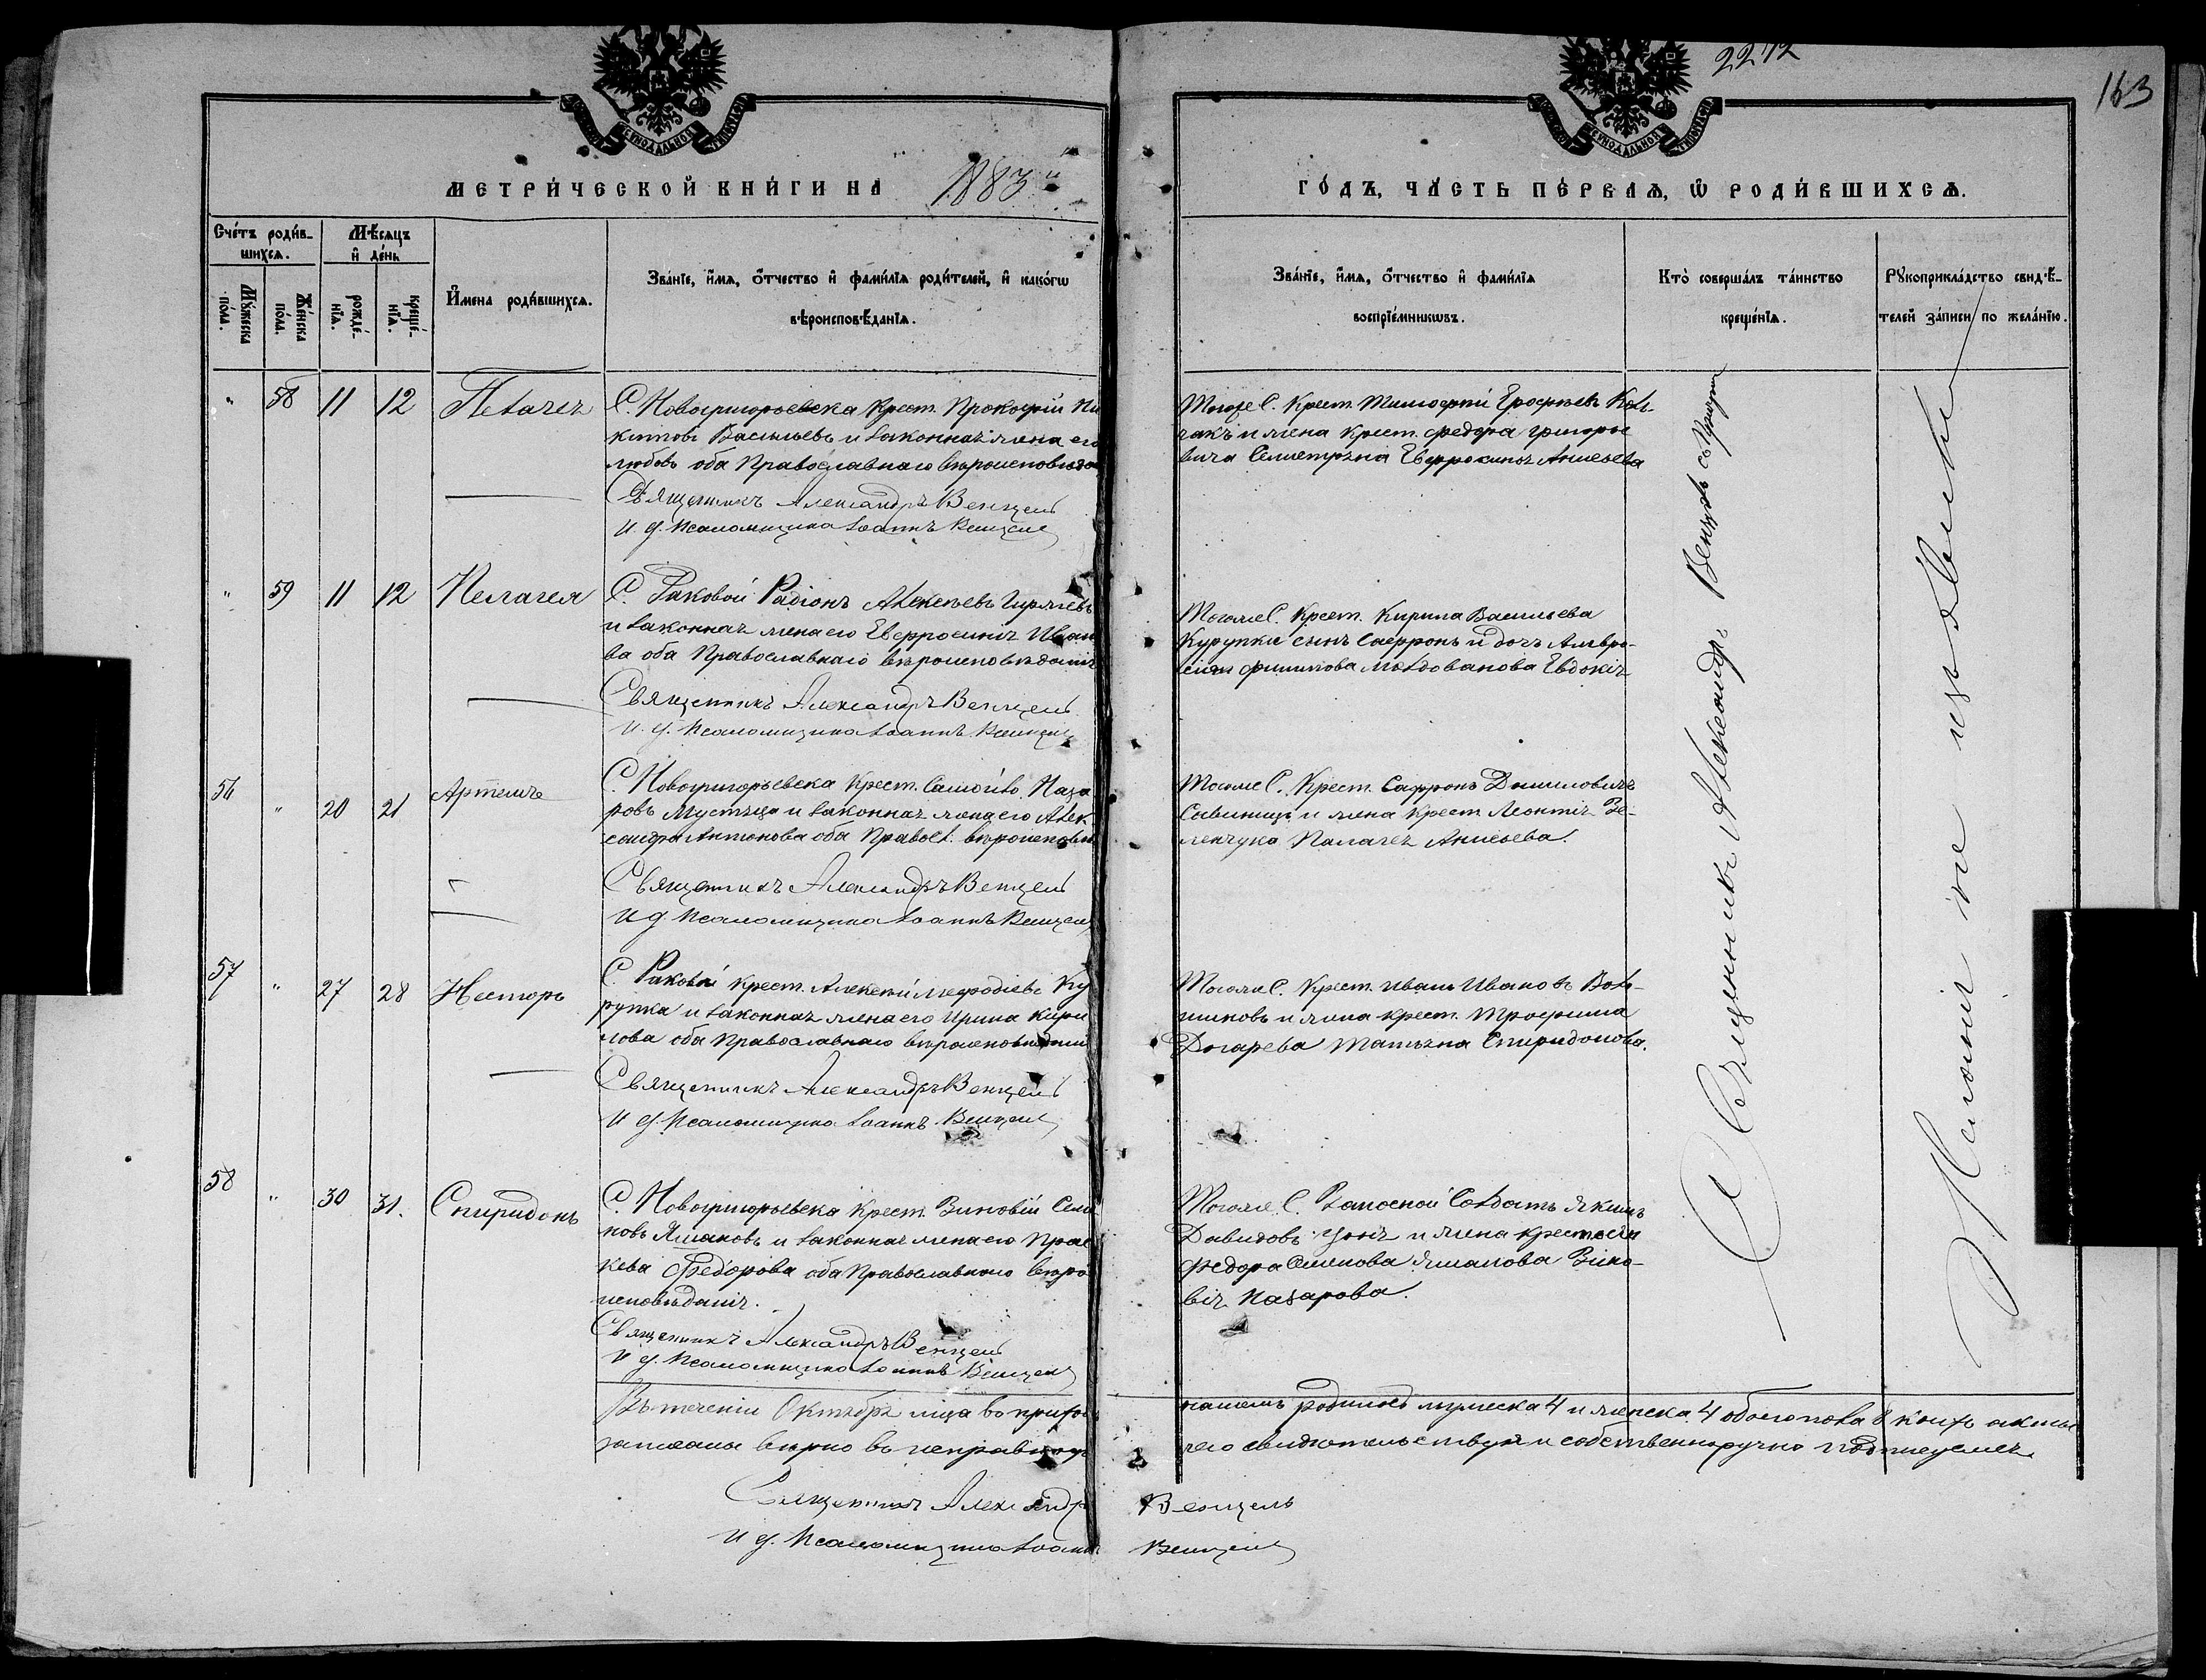 2272
163
МЕТРИ́ЧЕСКОЙ КНИ́ГИ НА 1883 й
ГО́ДЪ, ЧА́СТЬ ПЕ́РВАѦ, Ѿ РОДИ́ВШИХСѦ.
Сче́тъ роди́в-
шихсѧ.
Мѣ́сѧцъ
и҆ де́нь
Мꙋ́жеска
по́ла.
Же́нска
по́ла.
рожде́-
нїѧ.
креще́-
нїѧ.
И҆мена̀ роди́вшихсѧ.
Зва́нїе, и҆́мѧ, ѻ҆́тчество и҆ фами́лїѧ роди́телей, и҆ како́гѡ
вѣроисповѣ́данїѧ.
Зва́нїе, и҆́мѧ, ѻ҆́тчество и҆ фами́лїѧ
воспрїе́мникѡвъ.
Кто̀ соверша́лъ та́инство
креще́нїѧ.
Рꙋкоприкла́дство свидѣ́-
телей за́писи по жела́нїю.
" 58 11 12 Пелагея
С. Новогригорьевска Крест. Прокофій Ни
китовъ Васильевъ и законная жена его
Любовь оба Православнаго вѣроисповѣда
Священникъ Александръ Венцель
И д. Псаломщика Іоаннъ Венцель
Тогоже С. Крест. Тимофей Ерофеевъ Кол-
чакъ и жена крест. Федора Григорье
вича Евфросинія Алексѣева
" 59 11 12 Пелагея
С. Раковой Радіонъ Алексѣевъ
и законная жена его Евфросинія Иван
ва оба Православнаго вѣроисповѣданія
Священникъ Александръ Венцель
И. д. Псаломщика Іоаннъ Венцель
Тогоже С. Крест. Кирила Васильева
Курупки сынъ Сафронъ и дочь Амвро-
сія Филипова Молдованова Евдокія
56 " 20 21 Артемій
С. Новогригорьевска Крест. Самойло Наза
ровъ Мустяца и законная жена его Алек
сандра Антонова оба Правосл. вѣроисповѣ
Священникъ Александръ Венцель
И д. Псаломщика Іоаннъ Венцель
Тогоже С. Крест. Сафронъ Даниловичъ
Савиницъ и жена крест. Леонтія Зе-
ленчука Палагея Алексѣева.
57 " 27 28 Несторъ
С. Раковой Крест. Алексѣй Мефодіевъ Ку
рупка и законная жена его Ирина Кири
лова оба Православнаго вѣроисповѣданій
Священникъ Александръ Венцель
И д. Псаломщика Іоаннъ Венцель
Тогоже С. Крест. Иванъ Ивановъ Вол-
шиковъ и жена крест. Трофима
Догарева Татьяна Спиридонова.
58 " 30 31. Спиридонъ
С. Новогригорьевска Крест. Зиновій Семе
новъ Ямановъ и законная жена его Прас
кева Федорова оба Православнаго вѣро
исповѣданія.
Священникъ Александръ Венцель
И д. Псаломщика Іоаннъ Венцель
Тогоже С. Запасной Солдатъ Якимъ
Давидовъ Цонъ и жена крестьян
Федора Семенова Яманова Зино-
вія Назарова.
Священникъ Александръ Венцель
Желаній не изъявили
Въ теченіи Октября мѣсяца въ приходѣ нашемъ родилось мужеска 4 и женска 4 обоего пола 8 коихъ акты
записаны вѣрно въ исправность чего свидѣтельствуемъ и собственноручно подписуемся.
Священникъ Александръ Венцель
И д. Псаломщика Іоаннъ Венцель